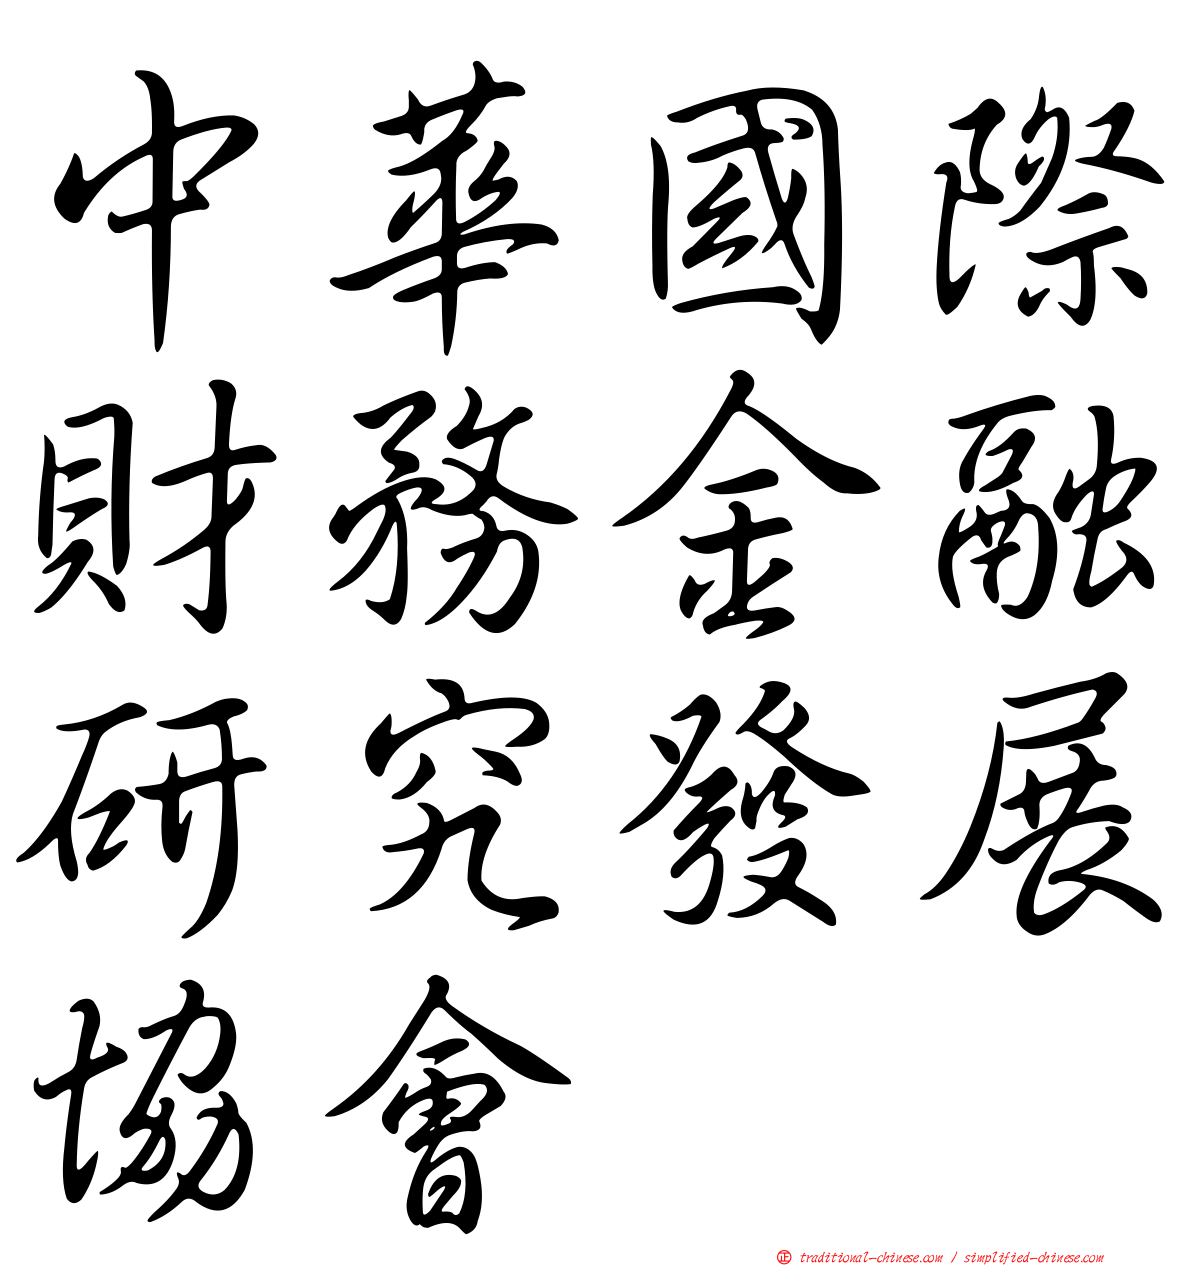 中華國際
財務金融
研究發展
協會
正 traditional-chinese.com / simplified-chinese.com